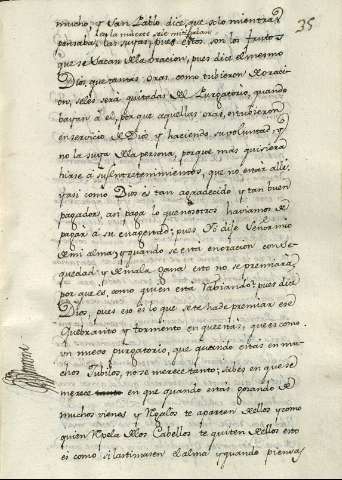 35
mucho, y San Pablo dice, que solo mientras
pensaba, las suyas; pues estos son los frutos
que se sacan de la oracion, pues dice el mismo
Dios, que tantas oras, como tubieron de oraci-
on, seles será quitadas del Purgatorio, quando
bayan á el, por que aquellas oras, entubieron
en servicio de Dios y haciendo su voluntad; y
no la suya de la persona, porque más quisiera
hirse á sus entretenimientos, que no estar alli,
y asi como Dios és tan agradecido y tan buen
pagador, asi paga lo que nosotros haviamos de
pagar á su Magestad; pues Yo dije Señor mio
de mi alma; y quando se está en oracion con se-
quedad y de mala gana esto no se premiará
por que és, como quien está rabiando? pues dice
Dios, pues eso és lo que se te ha de premiar ese
Quebranto y tormento en que estás; que es como
un nuevo purgatorio, que quando estás en mu-
chos Jubilos, no se merece tanto; sabes en que se
merece en que quando estás gozando de
muchos vienes y Regalos te aparten de ellos y como
quien Repela de los Cabellos te quiten de ellos esto
és como si lastimasen el alma y quando piensas